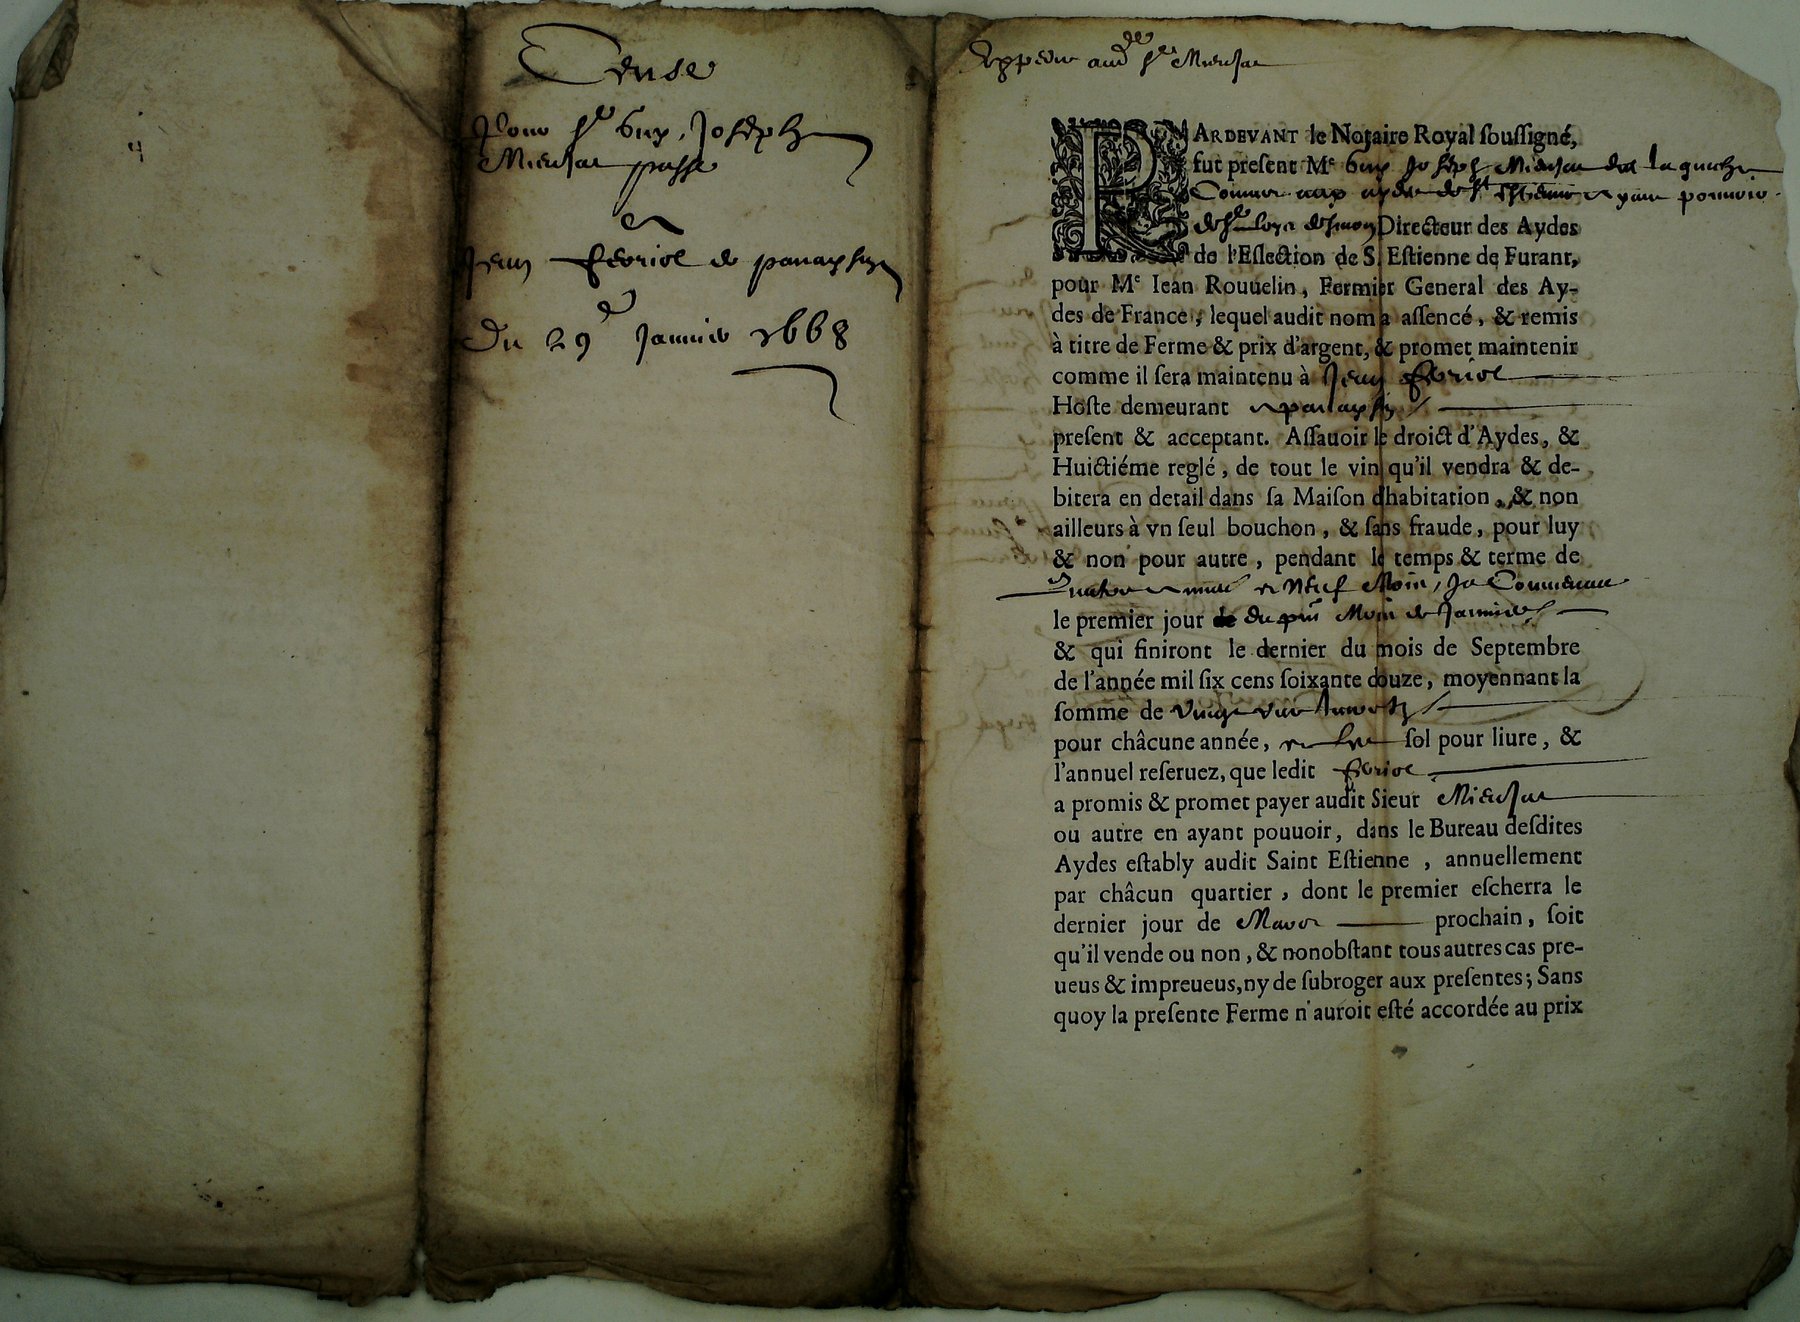 Cense
Pour Sr Guy Joseph
Mieusac passé
a
Jean fevriol de
Du 29e Janvier 1668
Expedié aud Sr Mieusac
PARDEVANT le Notaire Royal ſouſſigné,
fut preſent Me Guy Joseph Mieusac
Commis aux aydes de St Estienne ayant pouvoir
de Sr Directeur des Aydes
de l'Eſlection de S. Eſtienne de Furant,
pour Me Iean Rouuelin, Fermier General des Ay-
des de France, lequel audit nom a aſſencé, & remis
à titre de Ferme & prix d'argent, & promet maintenir
comme il ſera maintenu à Jean fevriol
Hoſte demeurant
preſent & acceptant. Aſſauoir le droict d'Aydes, &
Huictiéme reglé, de tout le vin qu'il vendra & de-
bitera en detail dans ſa Maiſon d'habitation, & non
ailleurs à vn ſeul bouchon, & ſans fraude, pour luy
& non pour autre, pendant le temps & terme de
Quatre années et Neuf Mois, Ja Commencé
le premier jour de du pnt Mois de Janvier
& qui finiront le dernier du mois de Septembre
de l'année mil ſix cens ſoixante douze, moyennant la
ſomme de vingt une livres
pour châcune année, et les ſol pour liure, &
l'annuel reſeruez, que ledit fevriol
a promis & promet payer audit Sieur Mieusac
ou autre en ayant pouuoir, dans le Bureau deſdites
Aydes eſtably audit Saint Eſtienne, annuellement
par châcun quartier, dont le premier eſcherra le
dernier jour de Mars prochain, ſoit
qu'il vende ou non, & nonobſtant tous autres cas pre-
ueus & impreueus, ny de ſubroger aux preſentes; Sans
quoy la preſente Ferme n'auroit eſté accordée au prix